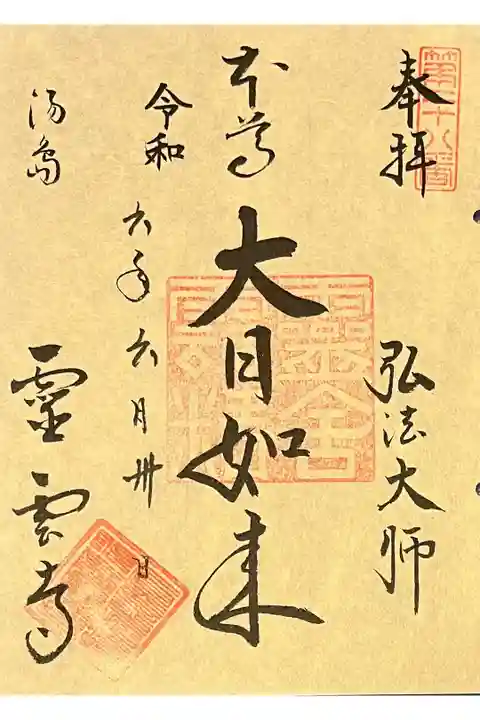 第二十八番
奉拝
弘法大師
本尊
大日如来
令和六年六月卅日
湯島
靈雲寺